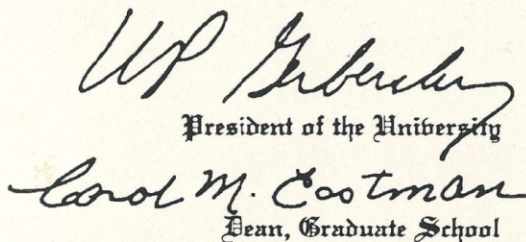 WP Gerberding
President of the University
Carol M. Eastman
Dean, Graduate School